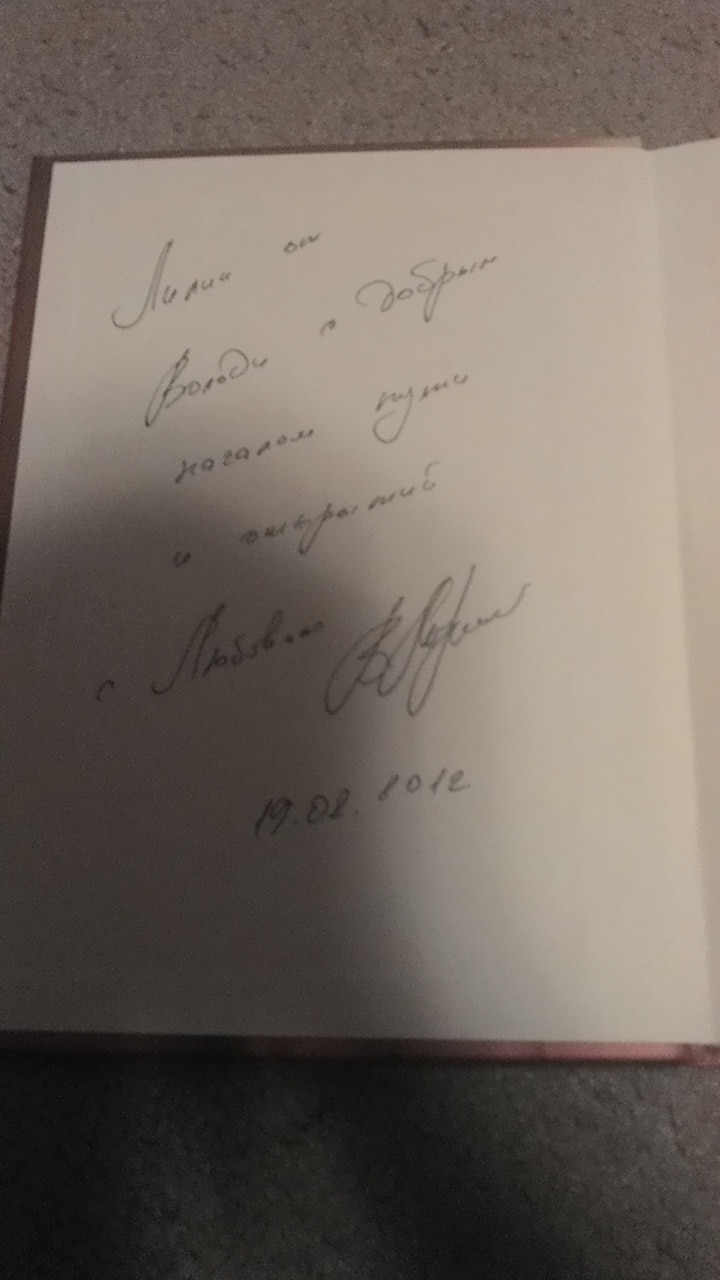 Лилии от
Володи с добрым
началом пути
и открытий
с Любовью
19.02.2012